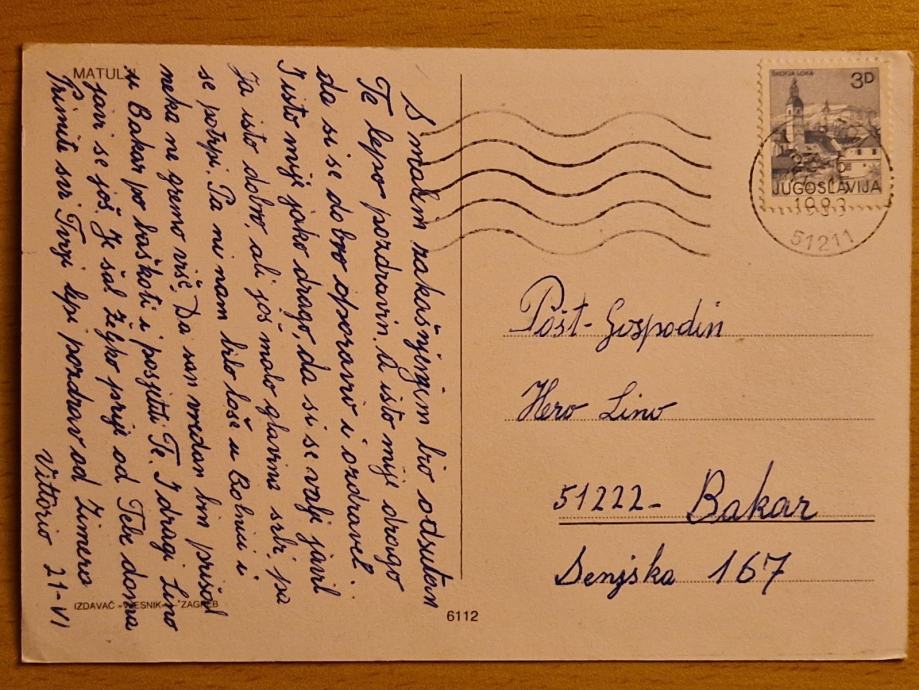 MATULJI
S malim zakašnjenjim bio odsuten
Te lepo pozdravin. A isto mije drago
da si se dobro oporavio i ozdravel.
I isto mije jako drago, da si se valje javil
Ja isto dobro, ali još malo glavina srbi, pa
se potrpi. Pa ni nam bilo loše u Bolnici i
neka ne gremo više. Da san vredan bin prišal
u Bakar po baškoti i posjetiti Te. I dragi Lino
javi se još. Je šal Željko prije od Tebe doma
Primite svi Tvoji lepi pozdrav od Zimera
Vittorio 21-VI
IZDAVAČ - VJESNIK - ZAGREB
6112
ŠKOFJA LOKA
3D
JUGOSLAVIJA
1983
51211
Pošt-Gospodin
Hero Lino
51222- Bakar
Senjska 167